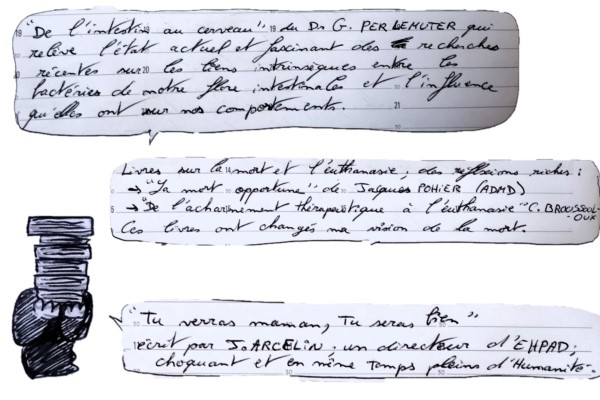 "De l'intestin au cerveau" du Dr G. PERLEMUTER qui
relève l'état actuel et fascinant des recherches
récentes sur les liens intrinsèques entre les
bactéries de notre flore intestinales et l'influence
qu'elles ont sur nos comportements.
Livres sur la mort et l'euthanasie, des réflexions riches :
→ "La mort opportune" de Jacques POHIER (ADMD)
→ "De l'acharnement thérapeutique à l'euthanasie" C. BROUSSOUL-
-OUX
Ces livres ont changés ma vision de la mort.
"Tu verras maman, Tu seras bien"
écrit par J. ARCELIN, un directeur d'EHPAD,
choquant et en même temps pleins d'Humanité.